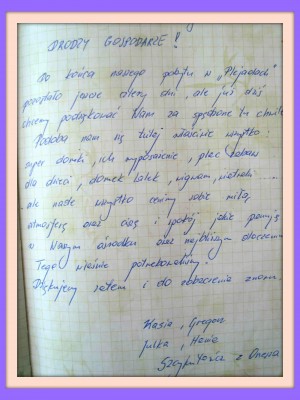 DRODZY GOSPODARZE!
Do końca naszego pobytu w "Plejadach"
pozostało jeszcze cztery dni, ale już dziś
chcemy podziękować Wam za spędzone tu chwile.
Podoba nam się tutaj właściwie wszystko:
super domki, ich wyposażenie, plac zabaw
dla dzieci, domek lalek, wigwam, ...
ale nade wszystko cenimy sobie miłą
atmosferę oraz ciszę i spokój jakie panują
w Waszym ośrodku oraz najbliższym otoczeniu.
Tego właśnie potrzebowaliśmy.
Dziękujemy zatem i do zobaczenia znowu.
Kasia, Grzegorz
Julka, Hania
z